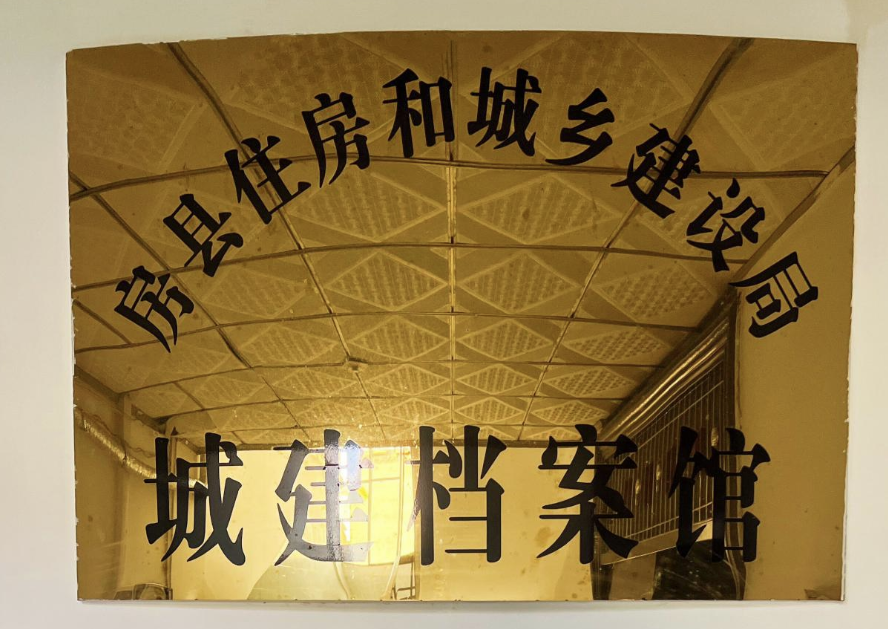 房县住房和城乡建设局
城建档案馆